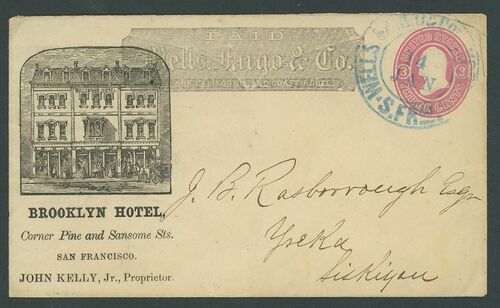 PAID
Wells, Fargo & Co.
CALIFORNIA AND COAST ROUTES.
UNITED STATES
3 3
THREE CENTS
WELLS
24
JAN
S. FR
BROOKLYN HOTEL,
Corner Pine and Sansome Sts.
SAN FRANCISCO.
JOHN KELLY, Jr., Proprietor.
J. B. Rosborough Esqr
Yreka
Siskiyou